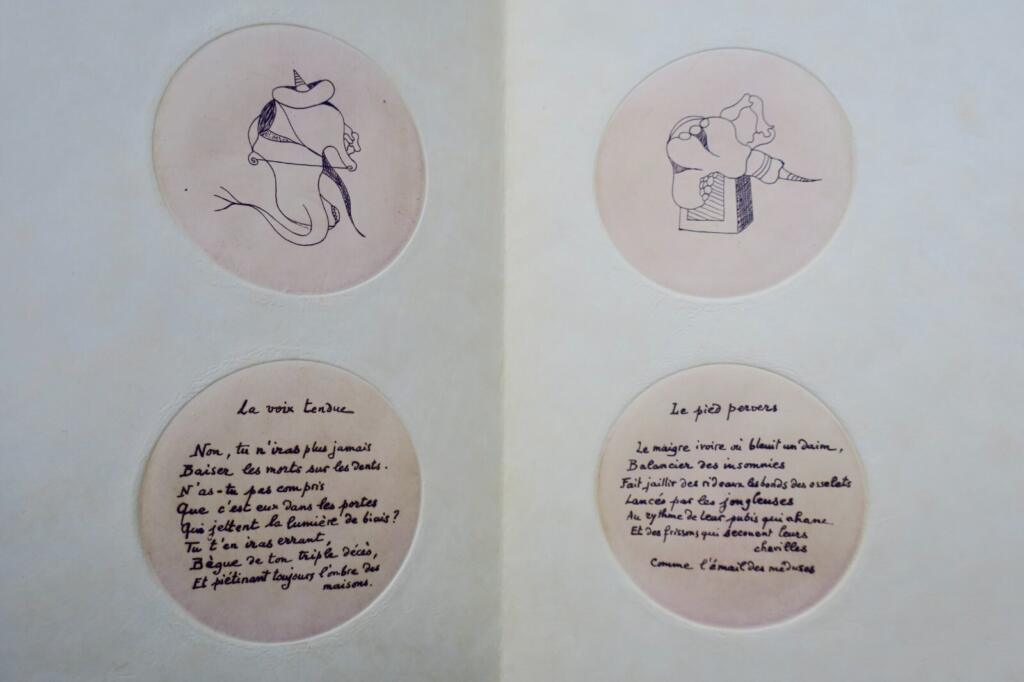 La voix tendue
Non, tu n'iras plus jamais
Baiser les morts sur les dents.
N'as-tu pas compris
Que c'est eux dans les portes
Qui jettent la lumière de biais?
Tu t'en iras errant,
Bègue de ton triple décès,
Et piétinant toujours l'ombre des
maisons.
Le pied pervers
Le maigre ivoire où bleuit un daim,
Balancier des insomnies
Fait jaillir des rideaux les bonds des osselets
Lancés par les jongleuses
Au rythme de leur pubis qui ahane
Et des frissons qui secouent leurs
chevilles
Comme l'émail des méduses